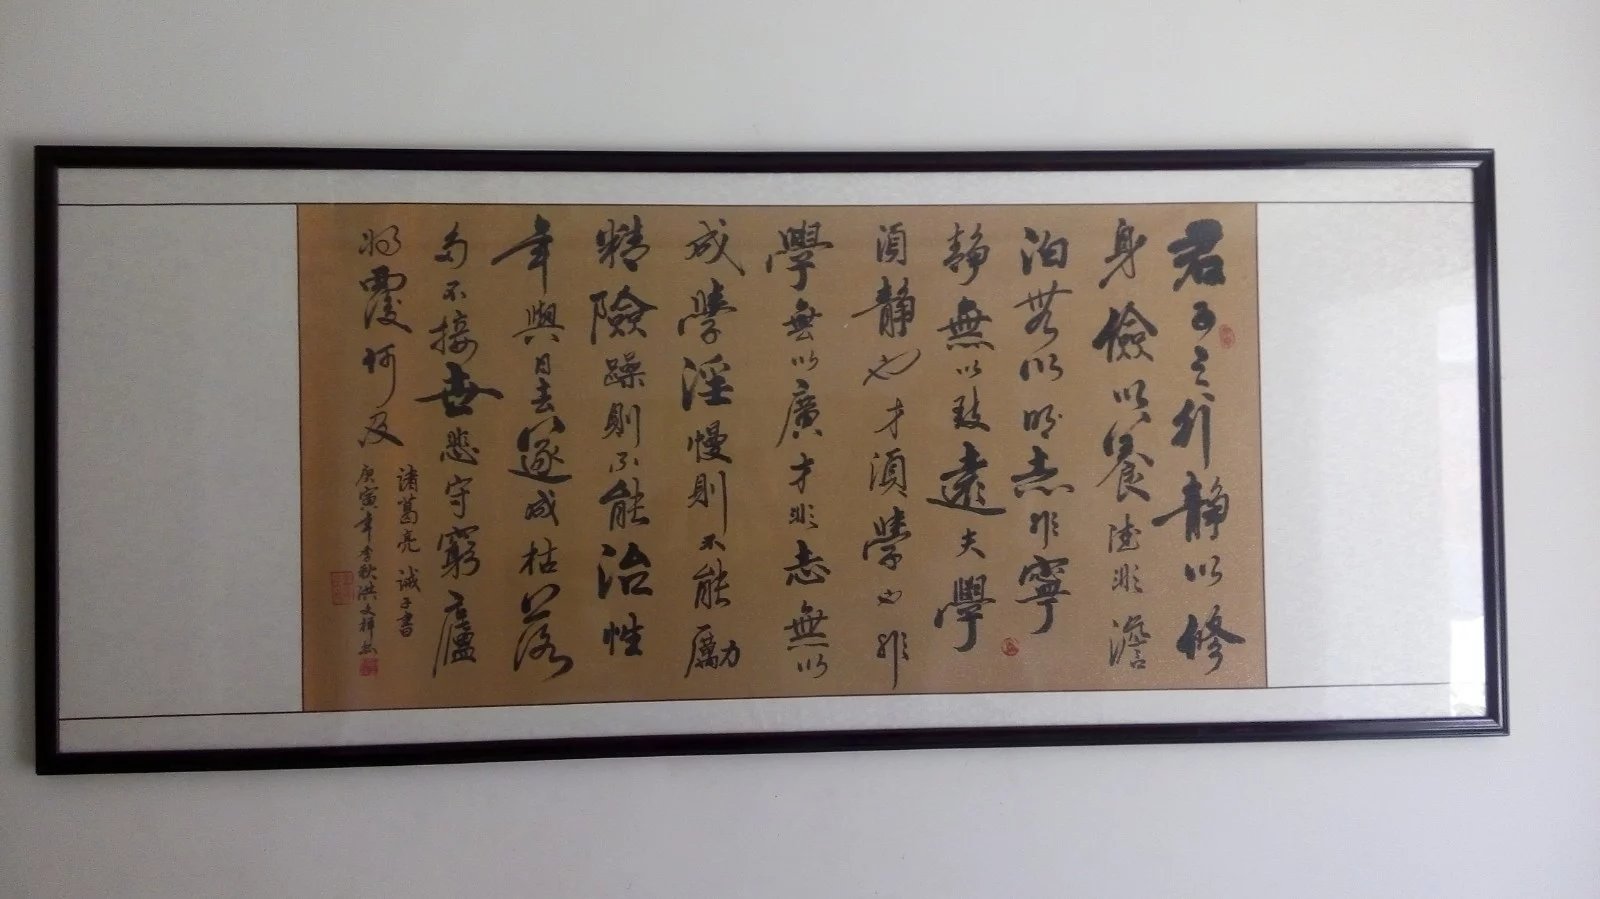 君子之行静以修
身儉以養德非澹
泊無以明志非寧
静無以致遠夫學
須静也才須學也非
學無以廣才非志無以
成學淫慢則不能勵
精險躁則不能治性
年與日去遂成枯落
多不接世悲守窮廬
将覆何及
諸葛亮誡子書
庚寅年季秋洪文祥